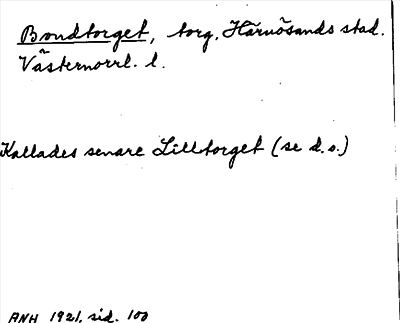 Bondtorget, torg, Härnösands stad.
Västernorrl. l.
Kallades senare Lilltorget (se d.o.)
ANH 1921, sid. 100